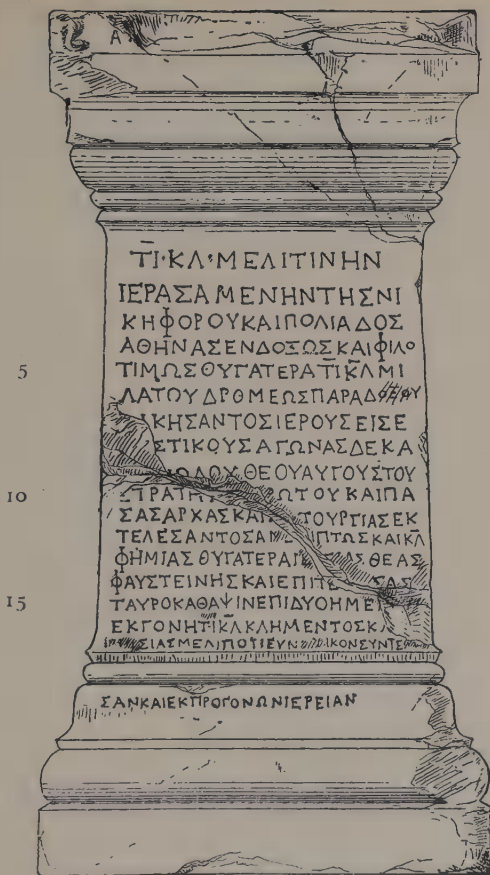 Α
ΤΙ·ΚΛ·ΜΕΛΙΤΙΝΗΝ
ΙΕΡΑΣΑΜΕΝΗΝΤΗΣΝΙ
ΚΗΦΟΡΟΥΚΑΙΠΟΛΙΑΔΟΣ
ΑΘΗΝΑΣΕΝΔΟΞΩΣΚΑΙΦΙΛΟ
5 ΤΙΜΩΣΘΥΓΑΤΕΡΑΤΙΚΛΜΙ
ΛΑΤΟΥΔΡΟΜΕΩΣΠΑΡΑΔ
ΙΚΗΣΑΝΤΟΣΙΕΡΟΥΣΕΙΣΕ
ΣΤΙΚΟΥΣΑΓΩΝΑΣΔΕΚΑ
ΟΥΘΕΟΥΑΥΓΟΥΣΤΟΥ
10 ΣΤΡΑΤΗ ΩΤΟΥΚΑΙΠΑ
ΣΑΣΑΡΧΑΣΚΑΙ ΤΟΥΡΓΙΑΣΕΚ
ΤΕΛΕΣΑΝΤΟΣΑ ΠΤΩΣΚΑΙΚΛ
ΦΗΜΙΑΣΘΥΓΑΤΕΡΑ ΑΣΘΕΑΣ
ΦΑΥΣΤΕΙΝΗΣΚΑΙΕΠΙΤΕ ΣΑΣ
15 ΤΑΥΡΟΚΑΘΑΨΙΝΕΠΙΔΥΟΗΜΕ
ΕΚΓΟΝΗΤΙΚΛΚΛΗΜΕΝΤΟΣΚΛ
ΣΙΑΣΜΕΛΙΠΟΤΙΕΥΝ ΙΚΟΝΣΥΝΤΕ
ΣΑΝΚΑΙΕΚΠΡΟΓΟΝΩΝΙΕΡΕΙΑΝ